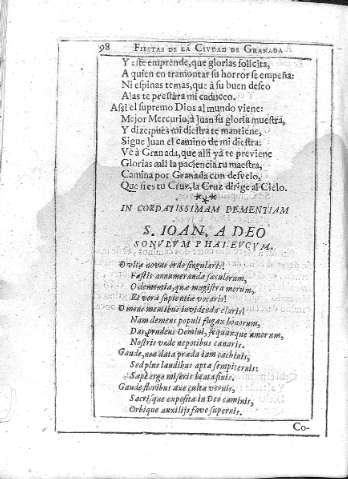 98 FIESTAS DE LA CIUDAD DE GRANADA
Y este emprende, que glorias solicita,
A quien en tramontar su horror se empeña:
Ni espinas temas, que à su buen deseo
Alas te prestàra mi caduceo.
Assi el supremo Dios al mundo viene:
Mejor Mercurio, à Juan su gloria muestra,
Y dize pues mi diestra te mantiene,
Sigue Juan el camino de mi diestra:
Ve à Granada, que alli yà te previene
Glorias mil la paciencia tu maestra,
Camina por Granada con desvelo,
Que si es tu Cruz, la Cruz dirige al Cielo.
***
IN CORDATISSIMAM DEMENTIAM
S. IOAN, A DEO
SONVLVM PHALEVCVM.
O vitæ novus ordo singularis!
Fastis annumeranda sæculorum,
O dementia, quæ magistra morum,
Et vera sapientiæ vocaris!
O mens mentibus invidenda claris!
Nam demens populi fugax honorum,
Das, prudens Domini, amorum,
Nostris unde nepotibus canaris.
Gaude, data præda iam cachinis,
Sed plus laudibus apta sempiternis:
Sapè ergo miseris beatasinis.
Gaude floribus culta vernis,
Sacris, que exposita in Deo caminis,
Orbique auxilijs fave supernis.
Co-